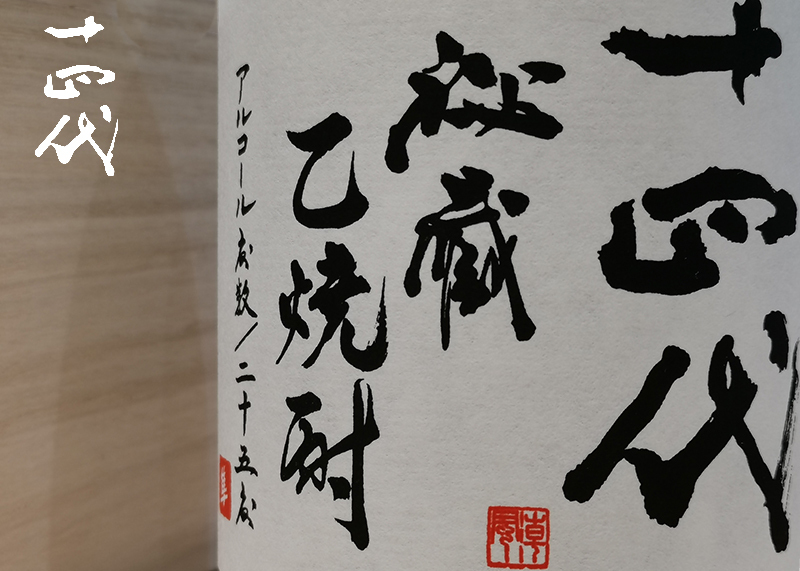 十四代
秘蔵
乙焼酎
アルコール度数/二十五度
十四代